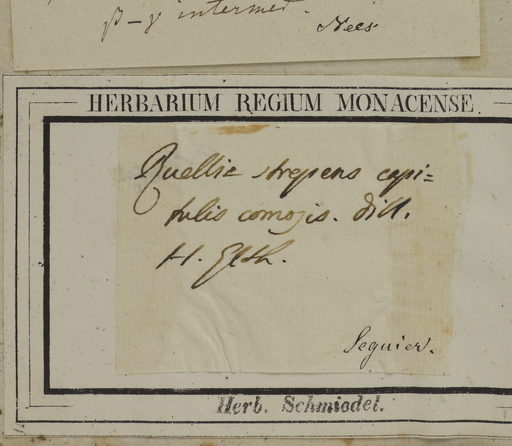 β – γ intermed.
Nees
HERBARIUM REGIUM MONACENSE.
Ruellia strepens capi=
tulis comosis. Dill.
H. Elth.
Seguier.
Herb. Schmiedel.